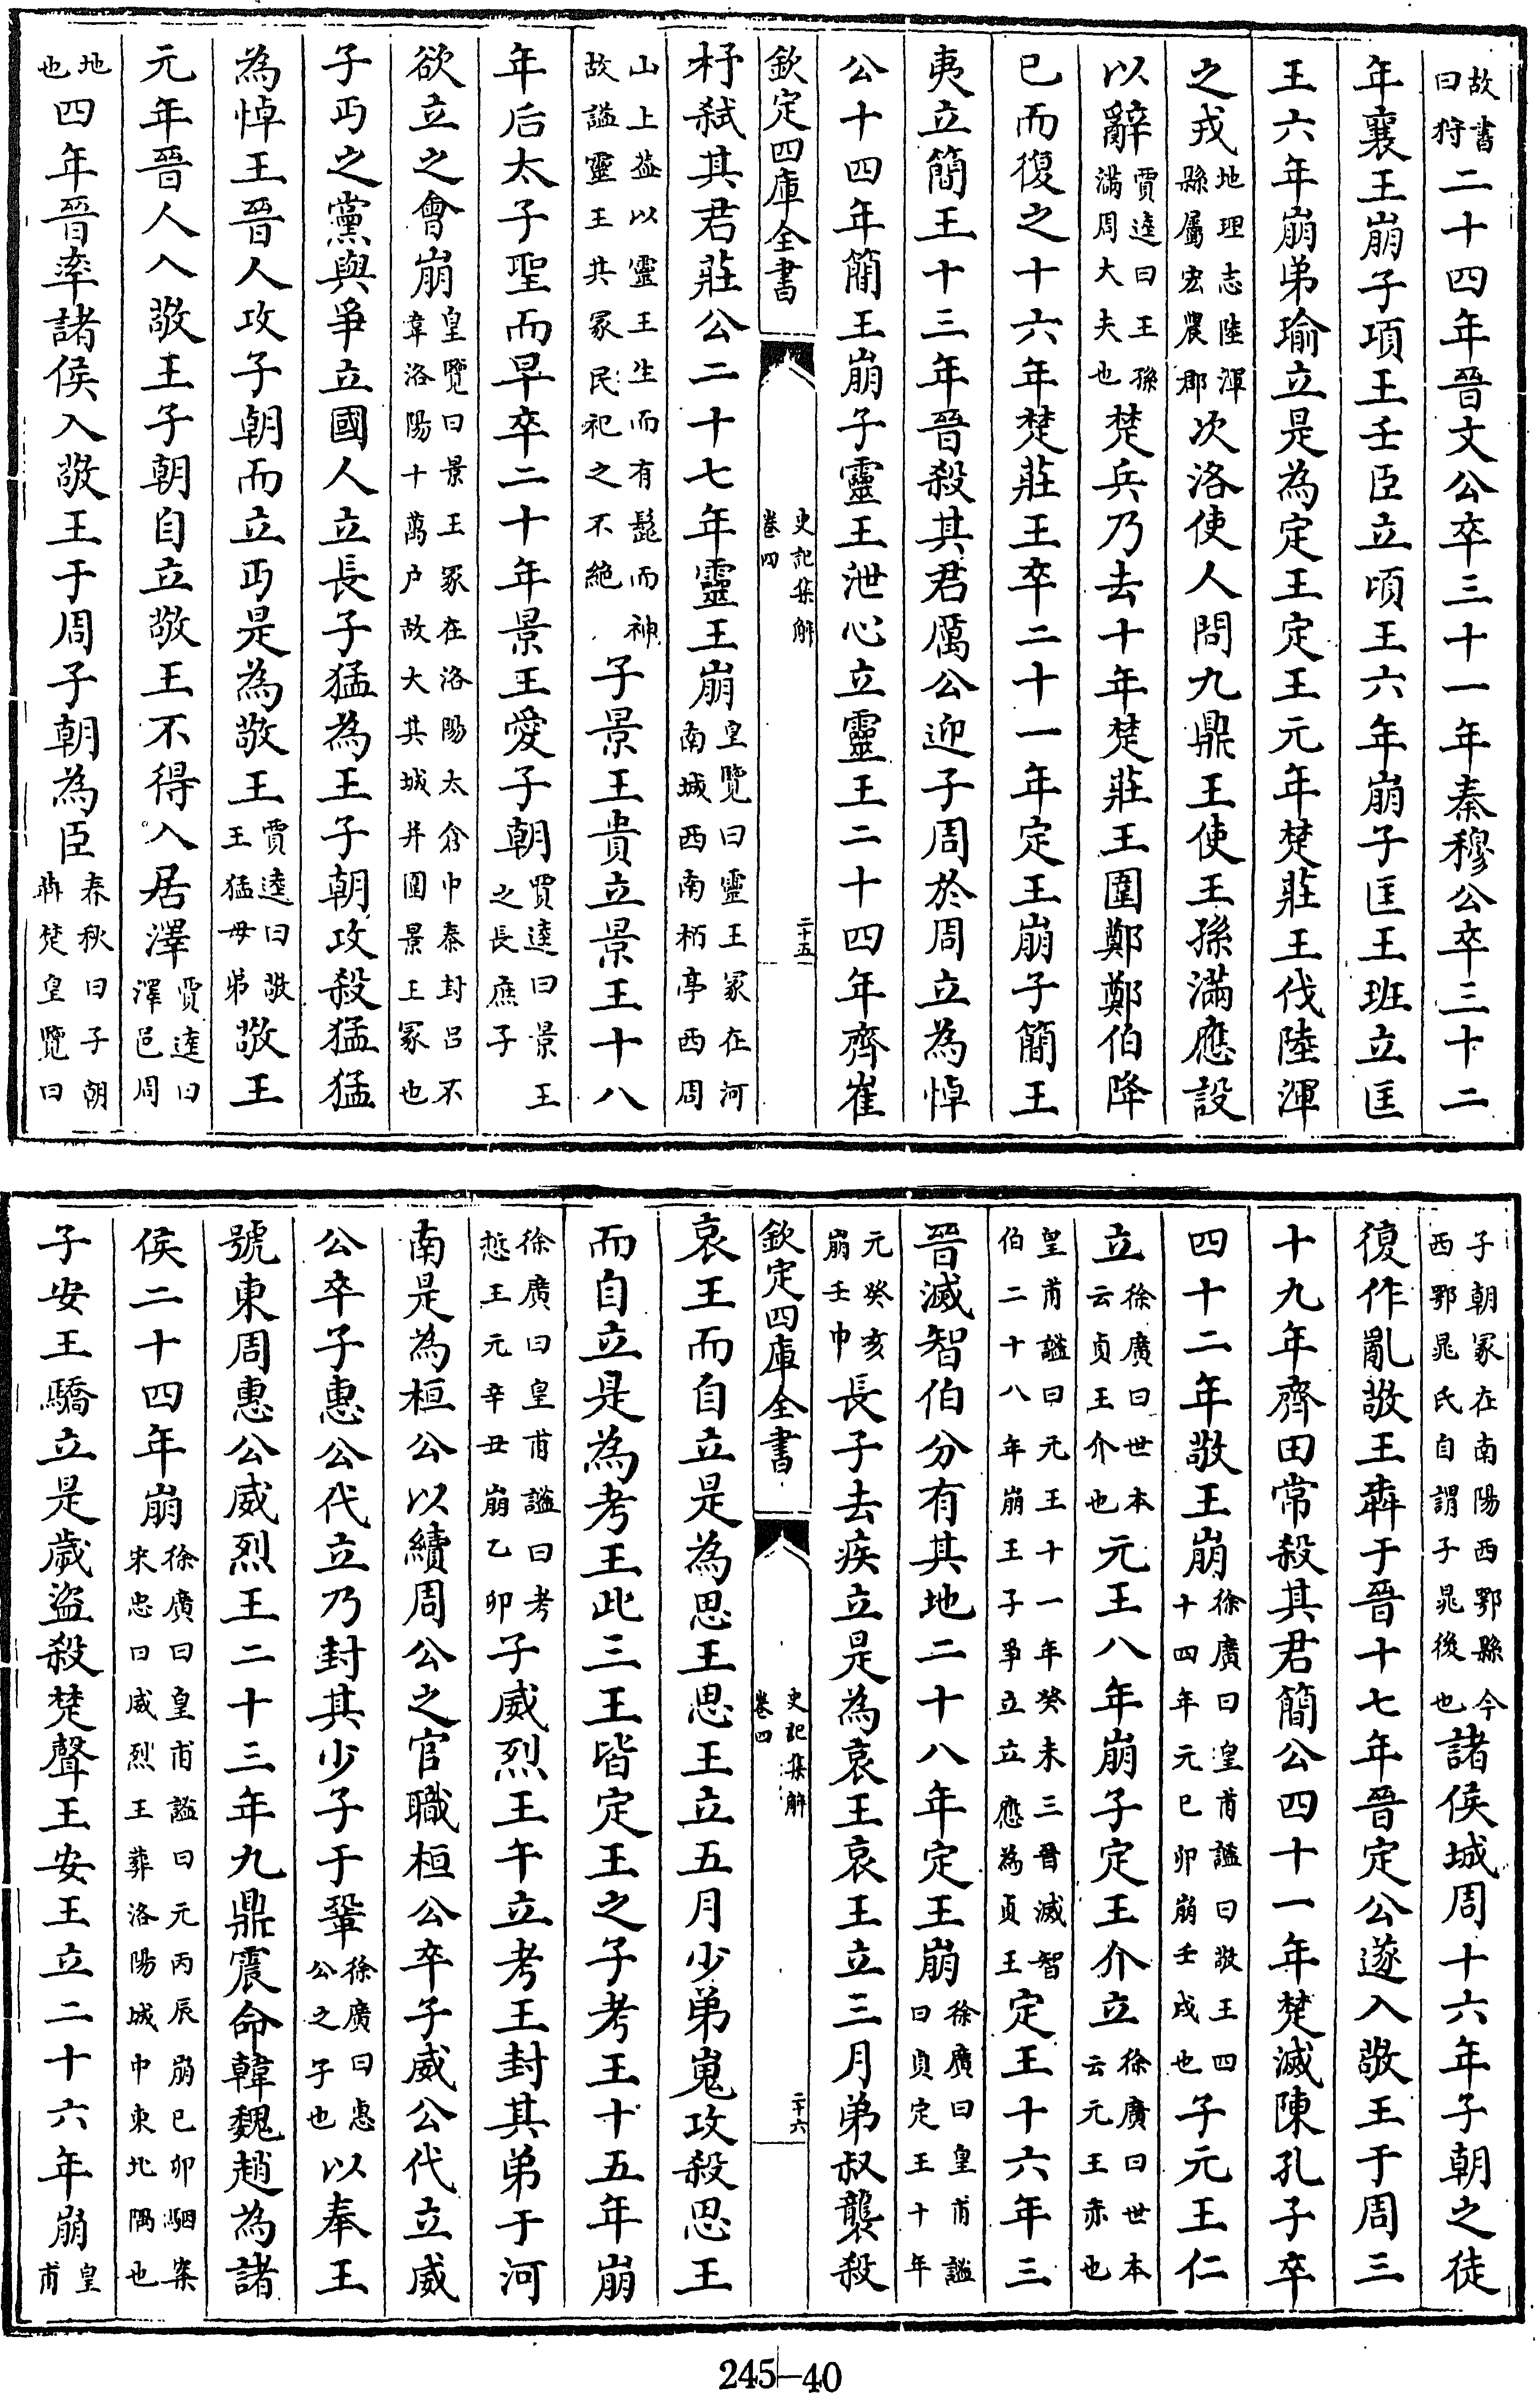 故書曰狩二十四年晉文公卒三十一年秦穆公卒三十二
年襄王崩子項王壬臣立頃王六年崩子匡王班立匡
王六年崩弟瑜立是為定王定王元年楚莊王伐陸渾
之戎地理志陸渾縣屬宏農郡次洛使人問九鼎王使王孫滿應設
以辭賈逵曰王孫滿周大夫也楚兵乃去十年楚莊王圍鄭鄭伯降
已而復之十六年楚莊王卒二十一年定王崩子簡王
夷立簡王十三年晉殺其君厲公迎子周於周立為悼
公十四年簡王崩子靈王泄心立靈王二十四年齊崔
欽定四庫全書 史記集解卷四 二十五
杼弒其君莊公二十七年靈王崩皇覽曰靈王冢在河南城西南栁亭西周
山上葢以靈王生而有髭而神故諡靈王其冢民祀之不絶子景王貴立景王十八
年后太子聖而早卒二十年景王愛子朝賈逵曰景王之長庶子
欲立之會崩皇覽曰景王冢在洛陽太倉中秦封呂不韋洛陽十萬户故大其城并圍景王冢也
子丏之黨與爭立國人立長子猛為王子朝攻殺猛猛
為悼王晉人攻子朝而立丏是為敬王賈逵曰敬王猛母弟敬王
元年晉人入敬王子朝自立敬王不得入居澤賈逵曰澤邑周
地也四年晉率諸侯入敬王于周子朝為臣春秋曰子朝犇楚皇覽曰
子朝冢在南陽西鄂縣今西鄂晁氏自謂子晁後也諸侯城周十六年子朝之徒
復作亂敬王犇于晉十七年晉定公遂入敬王于周三
十九年齊田常殺其君簡公四十一年楚滅陳孔子卒
四十二年敬王崩徐廣曰皇甫謐曰敬王四十四年元己卯崩壬戌也子元王仁
立徐廣曰世本云貞王介也元王八年崩子定王介立徐廣曰世本云元王赤也
皇甫謐曰元王十一年癸未三晉滅智伯二十八年崩王子爭立立應為貞王定王十六年三
晉滅智伯分有其地二十八年定王崩徐廣曰皇甫謐曰貞定王十年
元癸亥崩壬申長子去疾立是為哀王哀王立三月弟叔襲殺
欽定四庫全書 史記集解卷四 二十六
哀王而自立是為思王思王立五月少弟嵬攻殺思王
而自立是為考王此三王皆定王之子考王十五年崩
徐廣曰皇甫謐曰考悊王元辛丑崩乙卯子威烈王午立考王封其弟于河
南是為桓公以續周公之官職桓公卒子威公代立威
公卒子惠公代立乃封其少子于鞏徐廣曰惠公之子也以奉王
號東周惠公威烈王二十三年九鼎震命韓魏趙為諸
侯二十四年崩徐廣曰皇甫謐曰元丙辰崩己卯駰案宋忠曰威烈王葬洛陽城中東北隅也
子安王驕立是歲盜殺楚聲王安王立二十六年崩皇甫
245-40